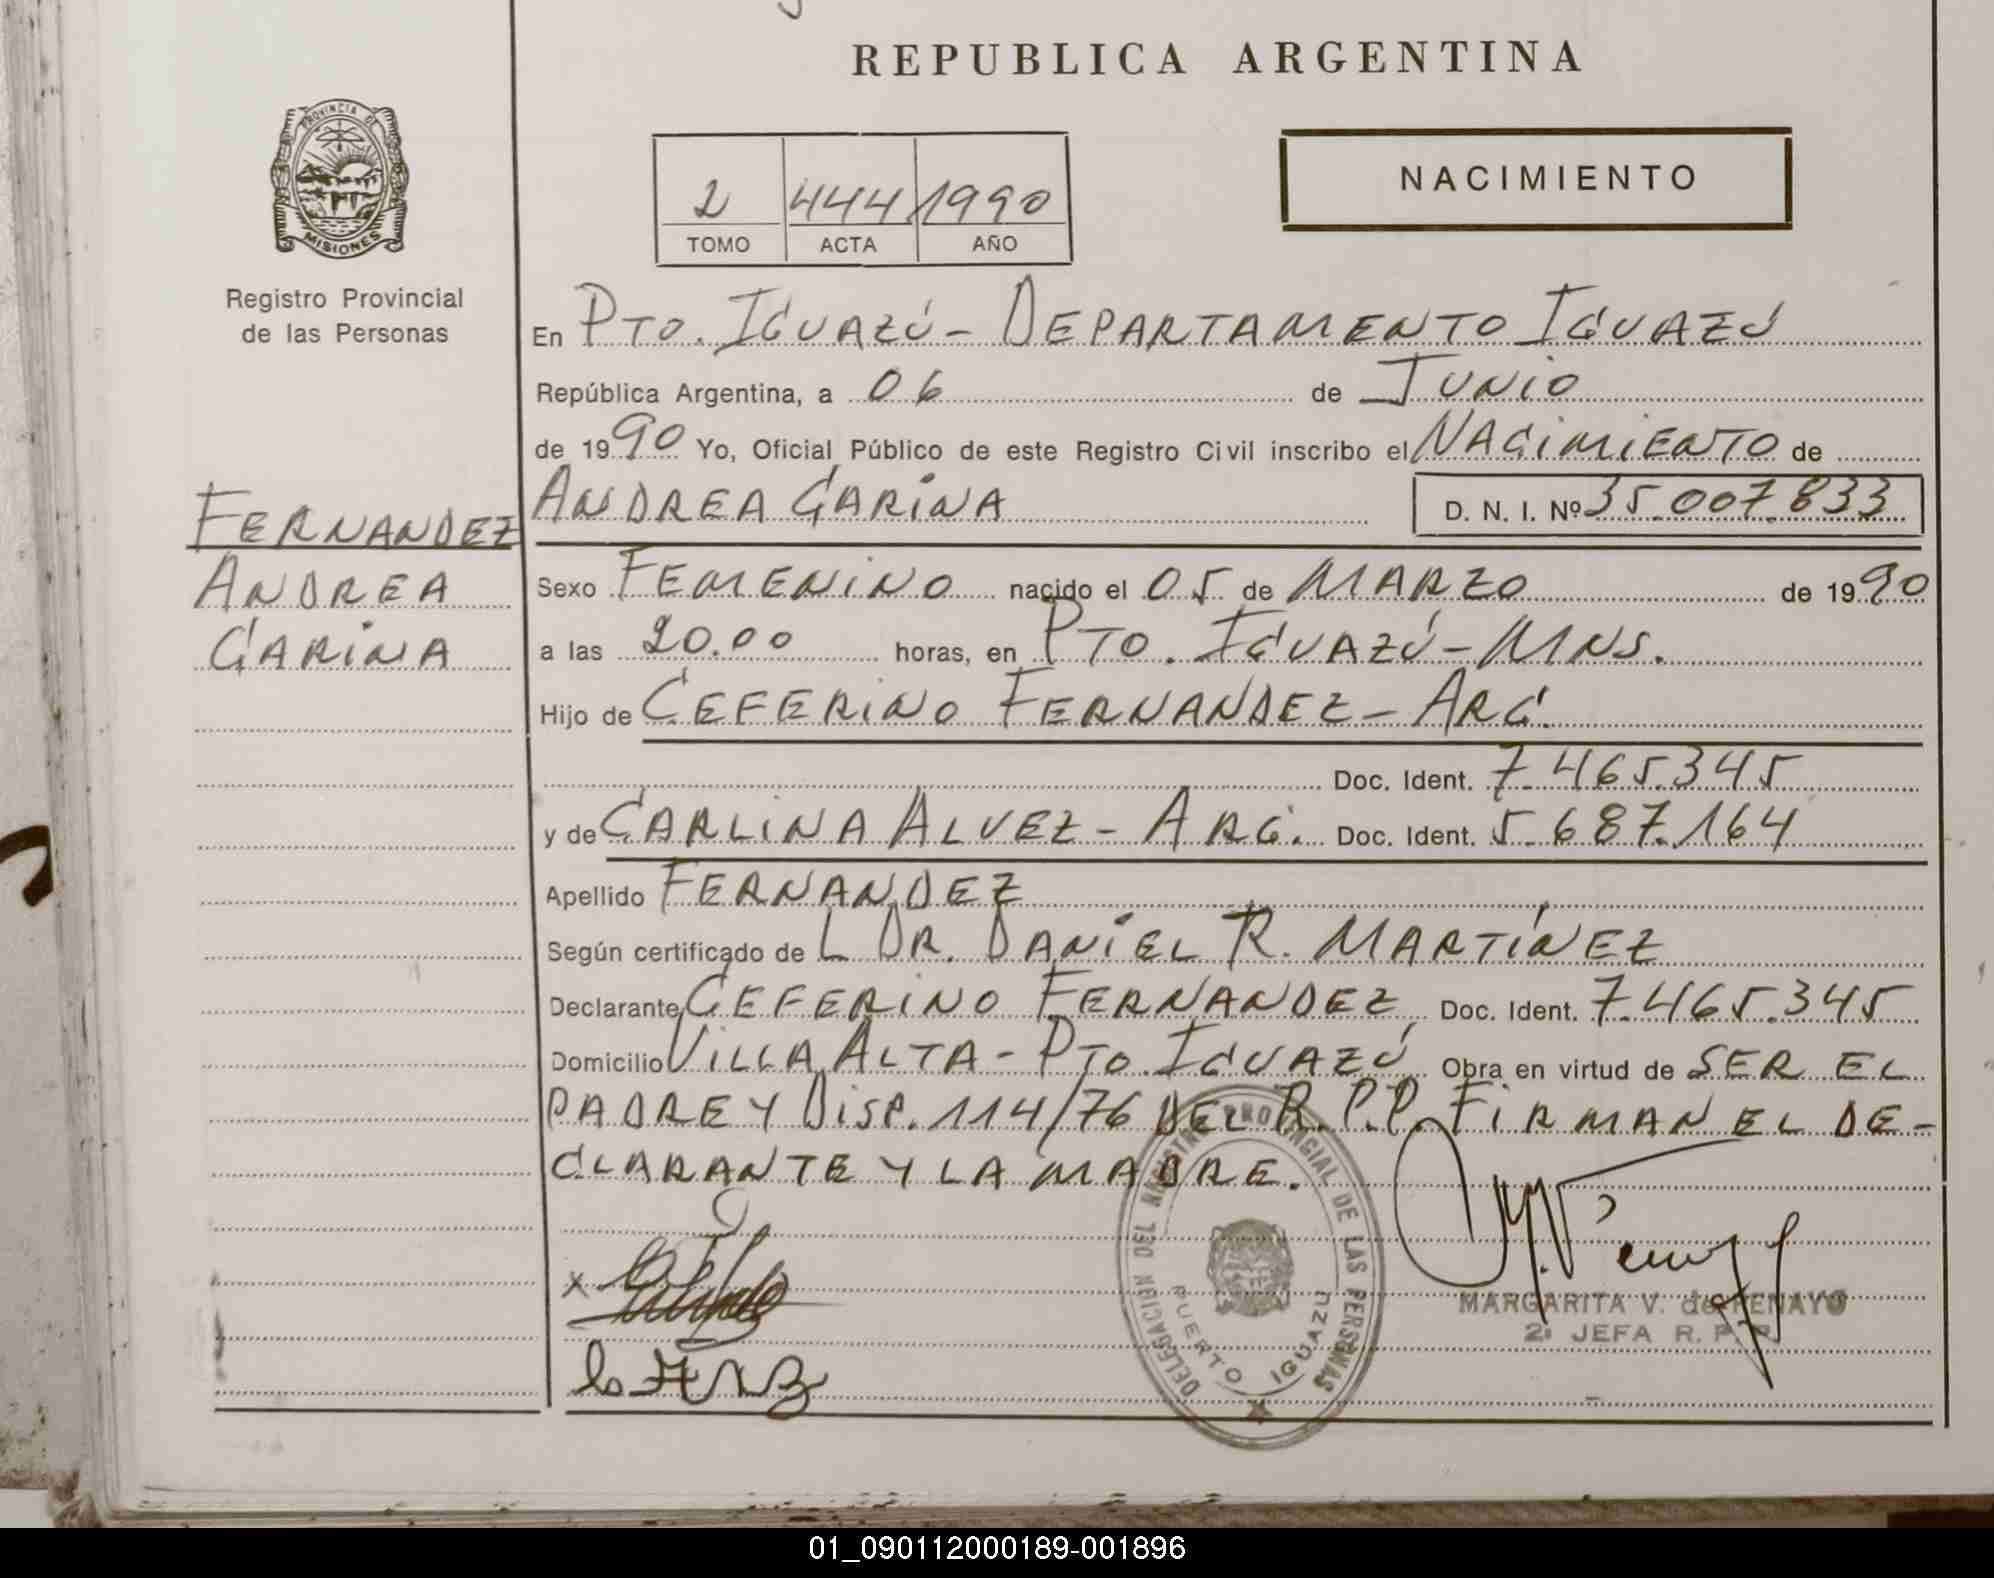 REPUBLICA ARGENTINA
PROVINCIA DE
MISIONES
Registro Provincial
de las Personas
2 444 1990
TOMO ACTA AÑO
NACIMIENTO
En PTO. IGUAZÚ - DEPARTAMENTO IGUAZÚ
República Argentina, a 06 de JUNIO
de 1990 Yo, Oficial Público de este Registro Civil inscribo el NACIMIENTO de
ANDREA CARINA D. N. I. Nº 35.007.833
FERNANDEZ
ANDREA
CARINA
Sexo FEMENINO nacido el 05 de MARZO de 1990
a las 20.00 horas, en PTO. IGUAZÚ - MNS.
Hijo de CEFERINO FERNANDEZ - ARG.
Doc. Ident. 7.465.345
y de CARLINA ALVEZ - ARG. Doc. Ident. 5.687.164
Apellido FERNANDEZ
Según certificado de L DR. DANIEL R. MARTÍNEZ
Declarante CEFERINO FERNANDEZ Doc. Ident. 7.465.345
Domicilio VILLA ALTA - PTO. IGUAZÚ, Obra en virtud de SER EL
PADRE Y DISP. 114/76 DEL R.P.P. FIRMAN EL DE-
CLARANTE Y LA MADRE.
DELEGACION DEL REGISTRO PROVINCIAL DE LAS PERSONAS
PUERTO IGUAZU
X
MARGARITA V. de PENAYO
2: JEFA R. P. P.
01_090112000189-001896